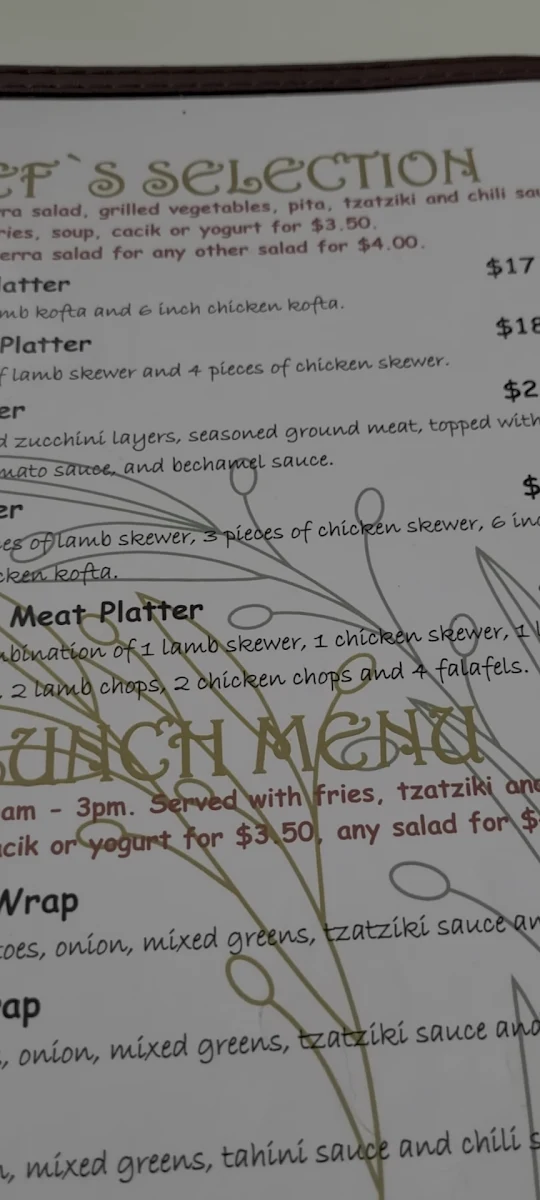 EF`S SELECTION
rra salad, grilled vegetables, pita, tzatziki and chili sau
ries, soup, cacik or yogurt for $3.50.
erra salad for any other salad for $4.00.
latter $17
mb kofta and 6 inch chicken kofta.
Platter $18
f lamb skewer and 4 pieces of chicken skewer.
er $2
d zucchini layers, seasoned ground meat, topped with
mato sauce, and bechamel sauce.
er $
es of lamb skewer, 3 pieces of chicken skewer, 6 inc
cken kofta.
Meat Platter
mbination of 1 lamb skewer, 1 chicken skewer, 1 l
, 2 lamb chops, 2 chicken chops and 4 falafels.
LUNCH MENU
am - 3pm. Served with fries, tzatziki and
acik or yogurt for $3.50, any salad for $
Wrap
toes, onion, mixed greens, tzatziki sauce an
rap
s, onion, mixed greens, tzatziki sauce and
n, mixed greens, tahini sauce and chili s